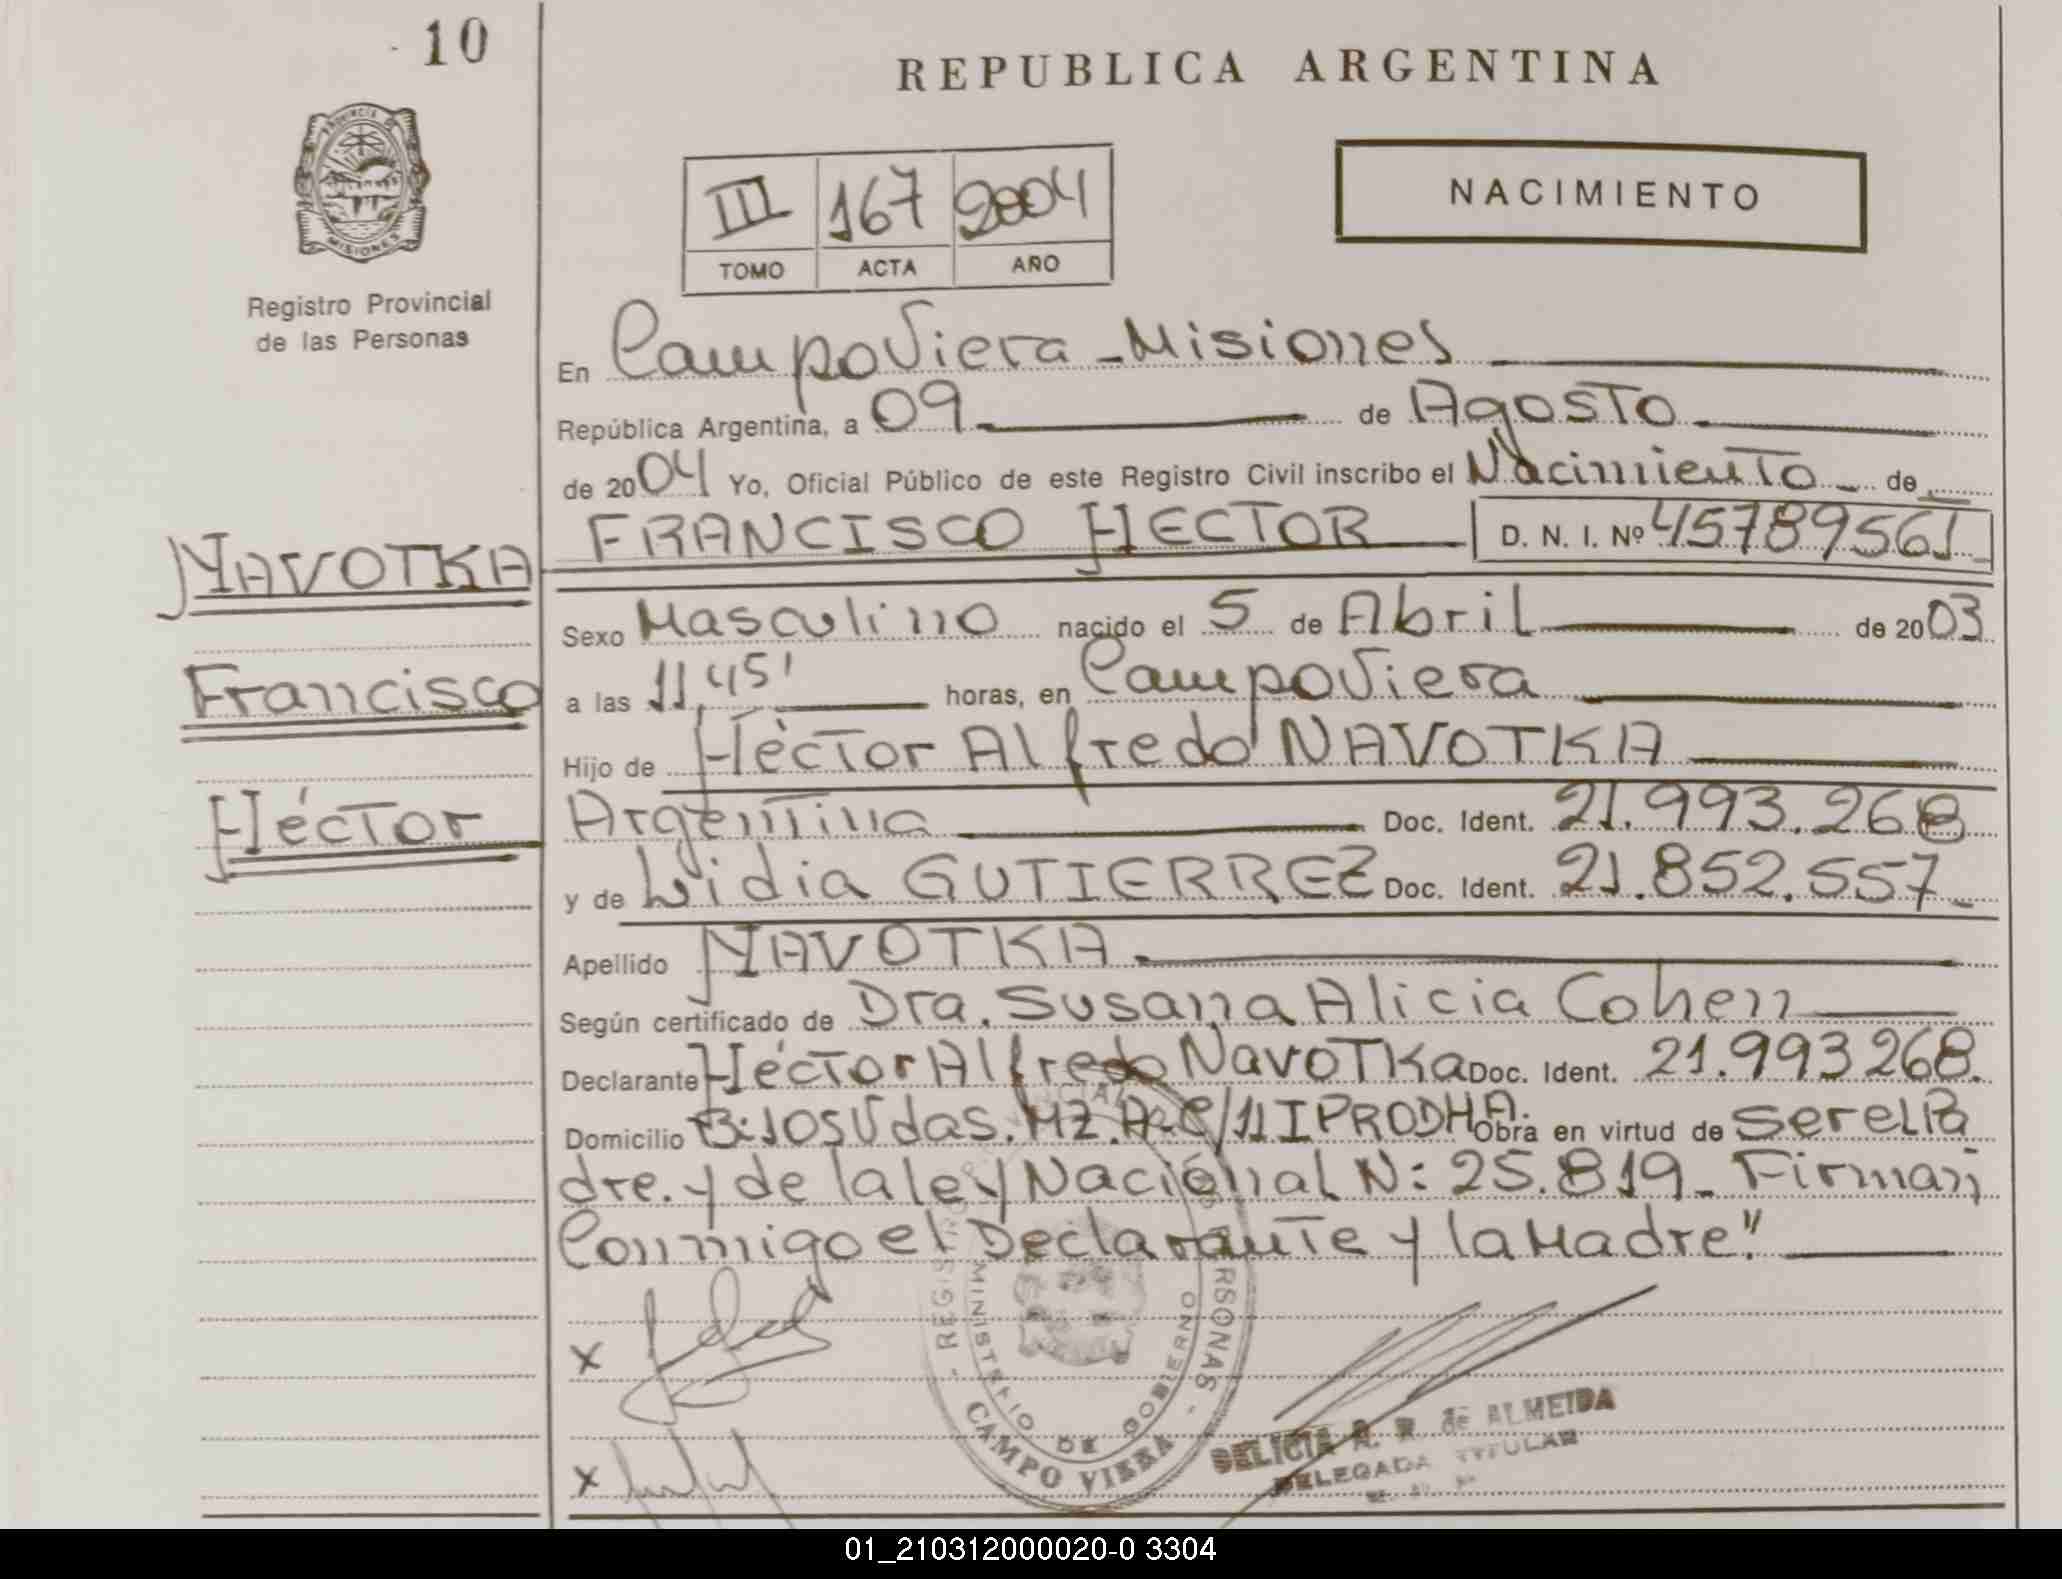 10
REPUBLICA ARGENTINA
PROVINCIA DE
MISIONES
Registro Provincial
de las Personas
III 167 2004
TOMO ACTA AÑO
NACIMIENTO
En CampoViera - Misiones
República Argentina, a 09 de Agosto
de 2004 Yo, Oficial Público de este Registro Civil inscribo el Nacimiento de
NAVOTKA FRANCISCO HECTOR D. N. I. Nº 45789561
Sexo Masculino nacido el 5 de Abril de 2003
Francisco a las 11,45' horas, en CampoViera
Hijo de Héctor Alfredo NAVOTKA
Héctor Argentina Doc. Ident. 21.993.268
y de Lidia GUTIERREZ Doc. Ident. 21.852.557
Apellido NAVOTKA
Según certificado de Dra. Susana Alicia Cohen
Declarante Héctor Alfredo NavoTKa Doc. Ident. 21.993 268.
Domicilio B: MZ. A-C/11 IPRODHA. Obra en virtud de ser el Pa
dre. y de la ley Nacional N: 25.819 - Firman
Conmigo el Declarante y la Madre."
REGISTRO PROVINCIAL DE LAS PERSONAS
MINISTERIO DE GOBIERNO
CAMPO VIERA
X
X
DELICIA R. R. de ALMEIDA
DELEGADA TITULAR
01_210312000020-0 3304